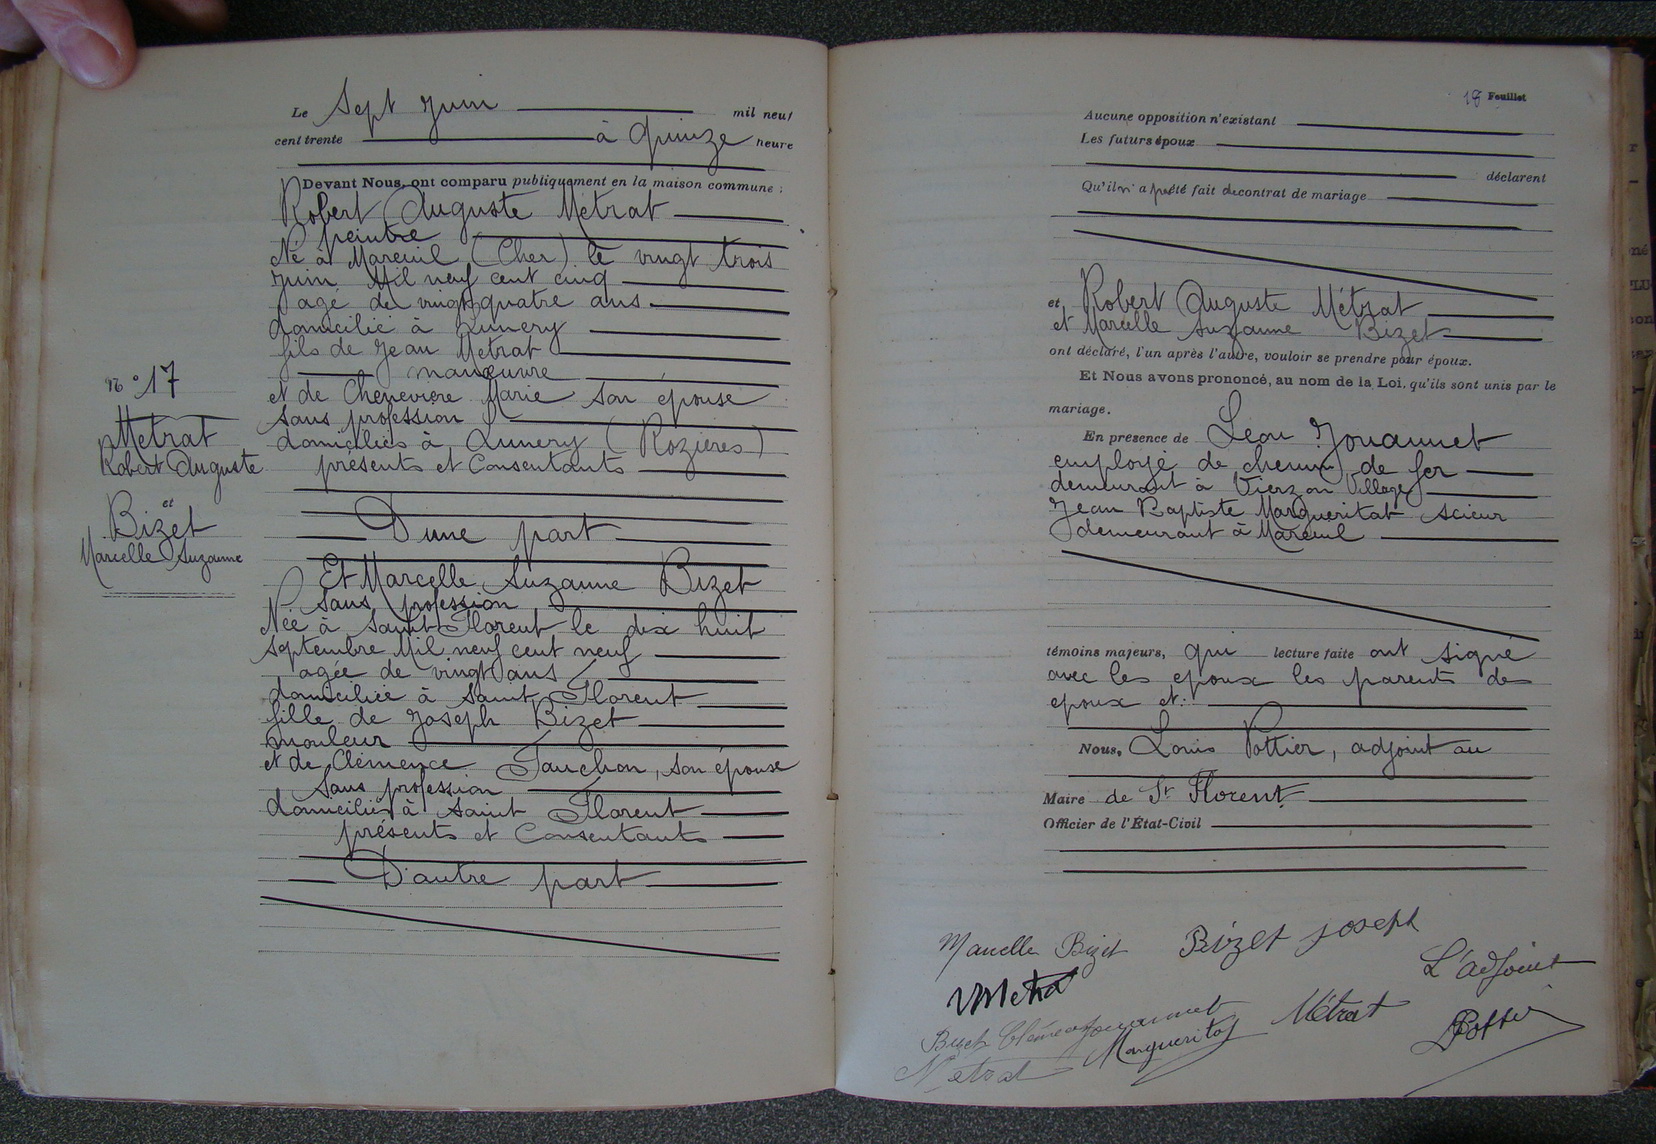 Le Sept Juin mil neuf
cent trente à quinze heure
Devant Nous, ont comparu publiquement en la maison commune :
Robert Auguste Metrat
peintre
Né à Mareuil (Cher) le vingt trois
Juin Mil neuf cent cinq
agé de vingt quatre ans
domicilié à Lunery
fils de Jean Metrat
manœuvre
et de Chenevière Marie son épouse
sans profession
domiciliés à Lunery (Rozières)
présents et Consentants
D'une part
Et Marcelle Suzanne Bizet
sans profession
Née à Saint Florent le dix huit
septembre Mil neuf cent neuf
agée de vingt ans
domiciliée à Saint Florent
fille de Joseph Bizet
mouleur
et de Clémence Fauchon, son épouse
Sans profession
domiciliés à Saint Florent
présents et Consentants
D'autre part
n° 17
Metrat
Robert Auguste
et
Bizet
Marcelle Suzanne
18 Feuillet
Aucune opposition n'existant
Les futurs époux
déclarent
Qu'il n'a pas été fait de contrat de mariage
et Robert Auguste Métrat
et Marcelle Suzanne Bizet
ont déclaré, l'un après l'autre, vouloir se prendre pour époux.
Et Nous avons prononcé, au nom de la Loi, qu'ils sont unis par le
mariage.
En presence de Léon Jouannet
employé de chemin de fer
demeurant à Vierzon Village
Jean Baptiste Margueritat scieur
demeurant à Mareuil
témoins majeurs, qui lecture faite ont signé
avec les epoux les parents des
epoux et
Nous, Louis Pottier, adjoint au
Maire de St Florent
Officier de l'État-Civil
Marcelle Bizet Bizet Joseph
L'adjoint
Metrat
Jouannet Métrat Pottier
Margueritat
Metrat